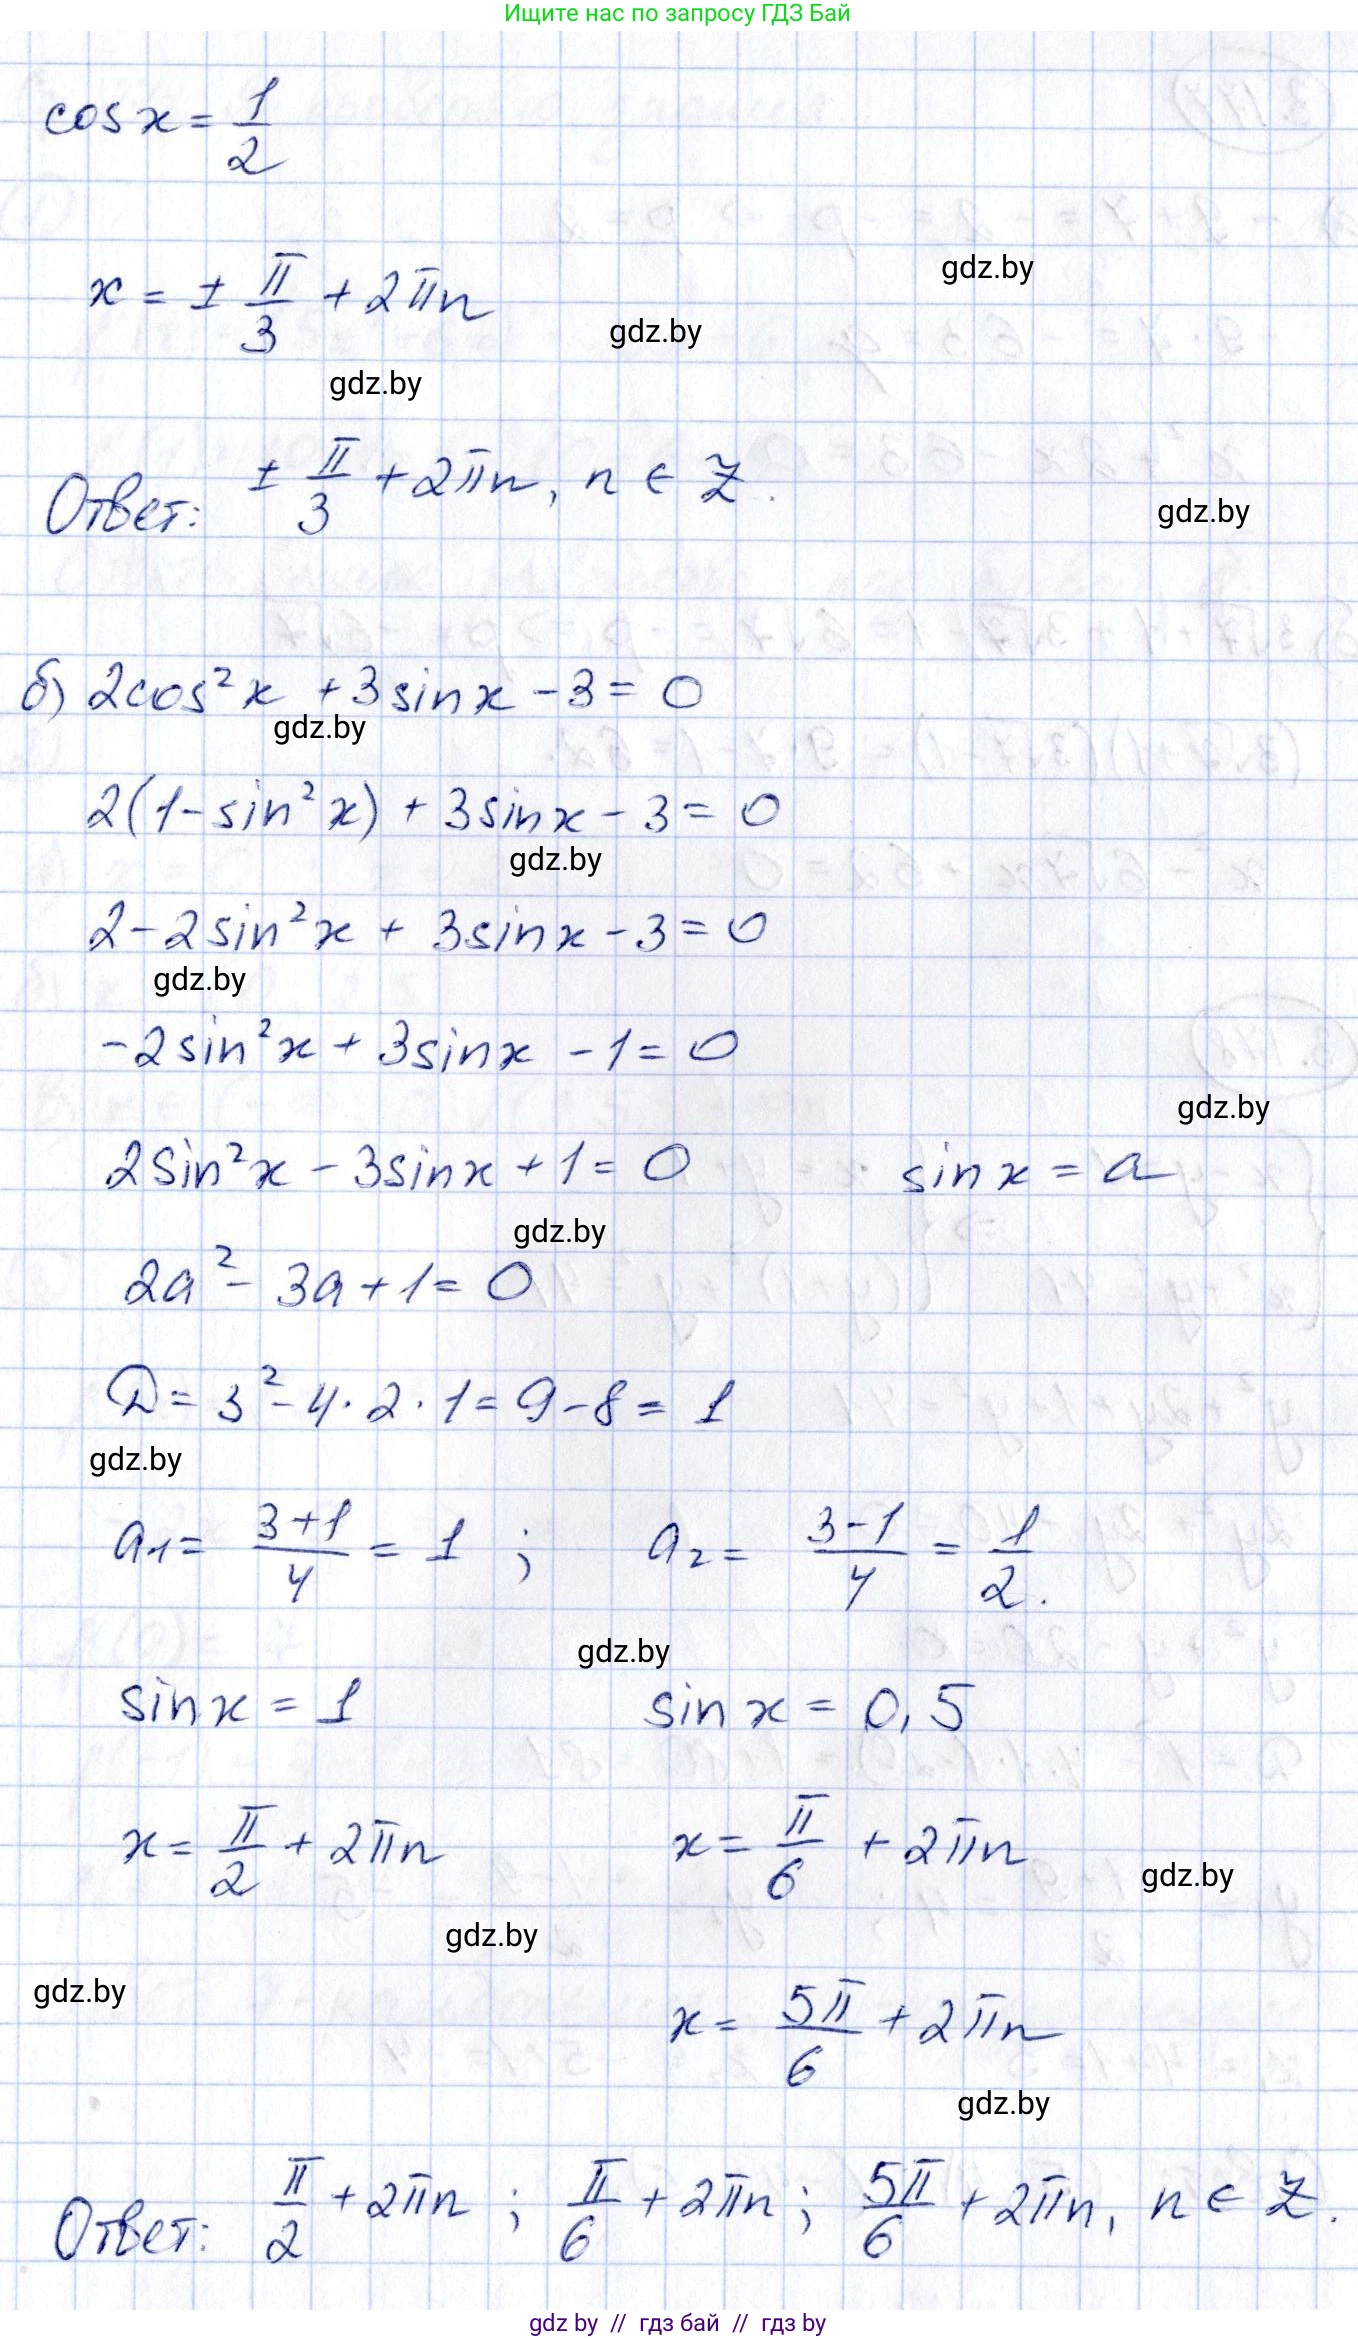 Ищите нас по запросу ГДЗ Бай
cos x = 1/2
x = ± π/3 + 2πn
gdz.by
gdz.by
gdz.by
Ответ: ± π/3 + 2πn, n ∈ Z.
gdz.by
б) 2cos²x + 3sinx - 3 = 0
gdz.by
2(1 - sin²x) + 3sinx - 3 = 0
gdz.by
2 - 2sin²x + 3sinx - 3 = 0
gdz.by
-2sin²x + 3sinx - 1 = 0
gdz.by
2sin²x - 3sinx + 1 = 0 sinx = a
gdz.by
2a² - 3a + 1 = 0
D = 3² - 4 · 2 · 1 = 9 - 8 = 1
gdz.by
a₁ = (3+1)/4 = 1 ; a₂ = (3-1)/4 = 1/2.
gdz.by
sinx = 1 sinx = 0,5
x = π/2 + 2πn x = π/6 + 2πn
gdz.by
gdz.by
gdz.by
x = 5π/6 + 2πn
gdz.by
Ответ: π/2 + 2πn ; π/6 + 2πn ; 5π/6 + 2πn, n ∈ Z.
gdz by // гдз бай // гдз by